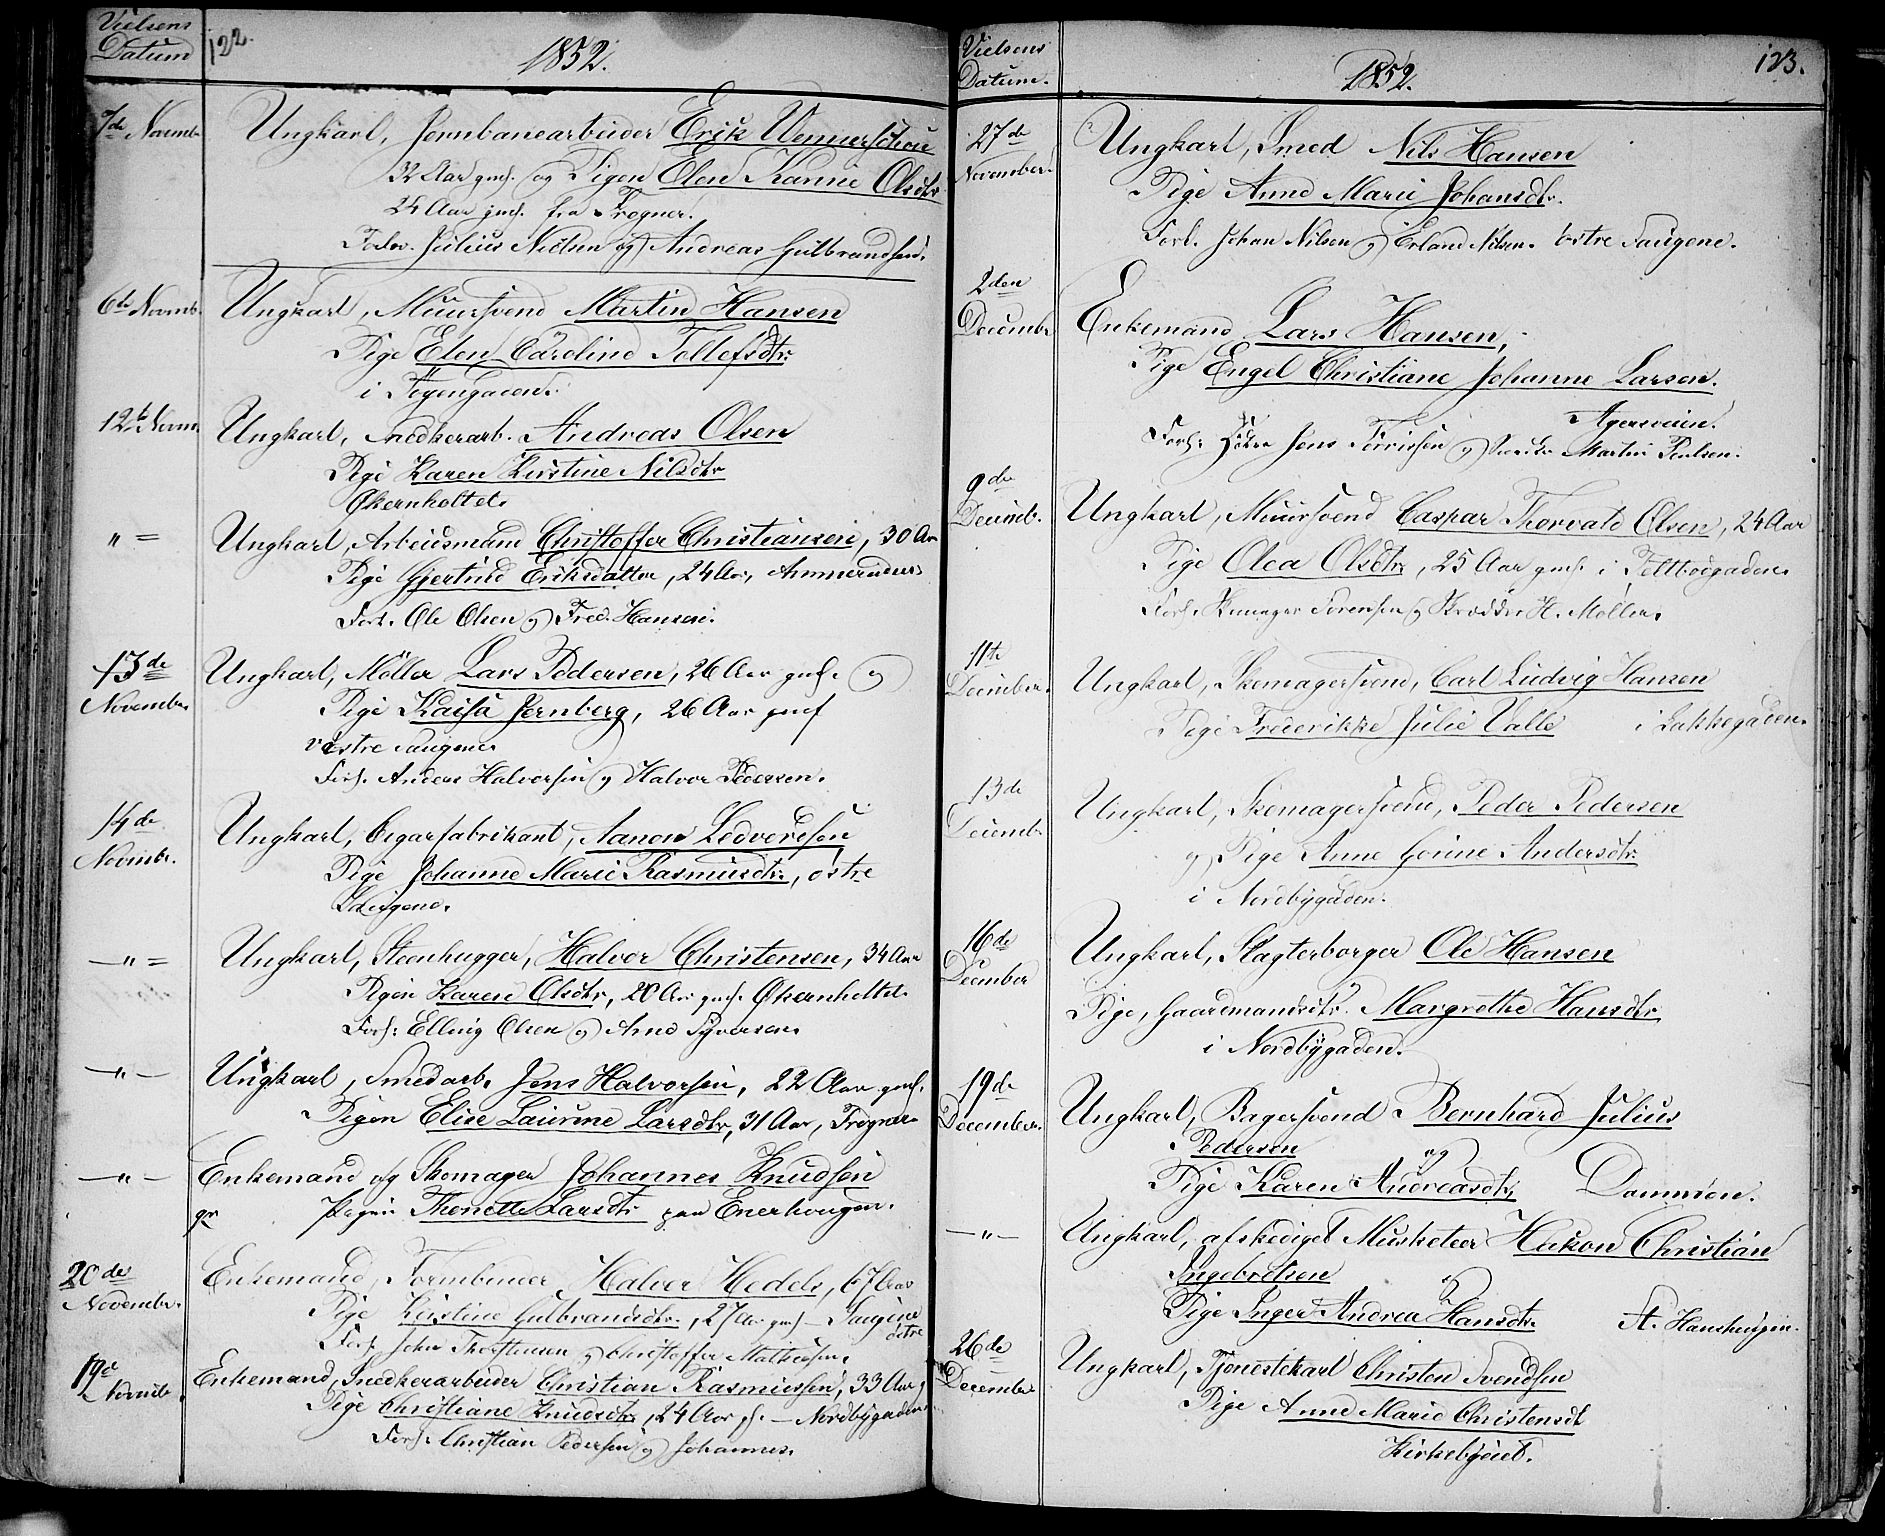 Vielsens
Datum
122.
1852.
7de Novemb.
Ungkarl, Jernbanearbeider Erik
32 Aar gml. og Pigen Olea Karine Olsdtr.
24 Aar gml. fra Frogner.
Forlov. Julius Nielsen og Andreas Gulbrandsen.
6te Novemb.
Ungkarl, Muursvend Martin Hansen
Pige Elen Caroline Tollefsdtr.
i
12te Novm.
Ungkarl, Snedkerarb. Andreas Olsen
Pige Karen Kirstine Nilsdtr.
Økernholtet.
" =
Ungkarl, Arbeidsmand Christoffer Christiansen, 30 Aar
Pige Gjertrud Eriksdatter, 24 Aar, Ammeruden
Forl. Ole Olsen og Fred. Hansen.
13de
November
Ungkarl, Møller Lars Pedersen, 26 Aar gml. og
Pige Kaisa Jernberg, 26 Aar gml
vestre Saugene
Forl. Anders Halvorsen og Halvor Pedersen.
14de
Novembr.
Ungkarl, Cigarfabrikant, Aanon Ledvordsen
Pige Johanne Marie Rasmusdtr., østre
Saugene.
— " =
Ungkarl, Steenhugger, Halvor Christensen, 34 Aar
Pigen Karen Olsdtr, 20 Aar gml. Økernholtet
Forl: Elling Olsen og Arne Syversen.
— " —
Ungkarl, Smedarb. Jens Halvorsen, 22 Aar gml.
Pigen Elise Laurine Larsdtr, 31 Aar, Frogner
— " —
Enkemand og Skomager Johannes Knudsen
gr Pigen Thonette Larsdtr paa Enerhougen.
20de
November.
Enkemand, Halvor Hedels, 67 Aar
Pige Kirstine Gulbrandsdtr., 27 Aar gml — Saugene
østre
Forl. John Thorstensen og Christoffer Mathiesen.
19de
Novmb.
Enkemand, Snedkerarbeider Christian Rasmussen, 33 Aar,
Pige Christiane Knudsdtr, 24 Aar gl. — Nordbygaden
Forl. Christian Pedersen og Johannes.
Vielsens
Datum.
1852.
123.
27de
November.
Ungkarl, Smed Nils Hansen
Pige Anne Marie Johansdtr.
Forl. Johan Nilsen og Erland Nilsen. østre Saugene.
2den
Decembr
Enkemand Lars Hansen,
Pige Engel Christiane Johanne Larsen.
Agersveien.
Forl: Jens og Martin Poulsen.
9de
Decemb.
Ungkarl, Muursvend Caspar Thorvald Olsen, 24 Aar
Pige Olea Olsdtr, 25 Aar gml. i Toltbodgaden.
Forl. Sørensen og Skrædder H. Møller.
11te
December.
Ungkarl, Skomagersvend, Carl Ludvig Hansen
Pige Frederikke Julie Valle i Lakkegaden.
13de
Decemb.
Ungkarl, Skomagersvend, Peder Pedersen
og Pige Anne Gorine Andersdtr.
i Nordbygaden.
16de
December
Ungkarl, Slagterborger Ole Hansen
Pige, Gaardmandsdtr. Margrethe Hansdtr
i Nordbygaden.
19de
December.
Ungkarl, Bagersvend Bernhard Julius
Pedersen og
Pige Karen Andreasdtr, Damnien.
— " —
Ungkarl, afskediget Musketeer Hakon Christian
Ingebretsen og
Pige Inger Andrea Hansdtr. St. Hanshaugen.
26de
December
Ungkarl, Tjenestekarl Christen Svendsen
Pige Anne Marie Christensdt
Kirkebyeiet.